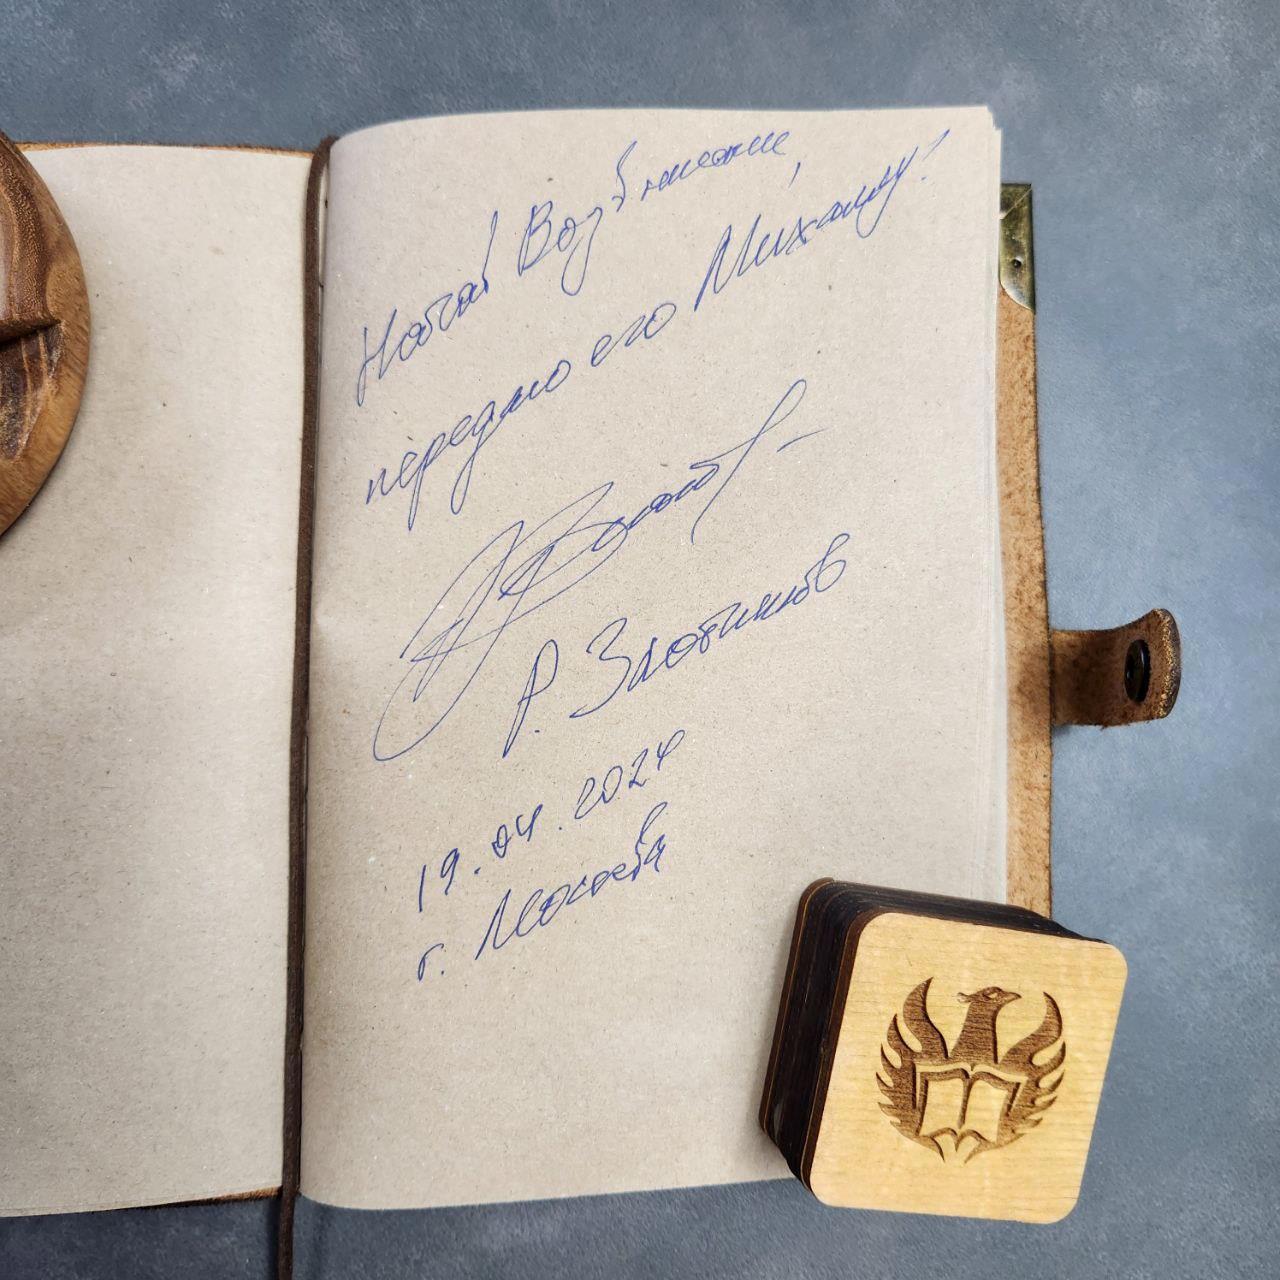 Начав Возвышение,
передаю его Михаилу!
Р. Злотников
19.04.2024
г. Москва